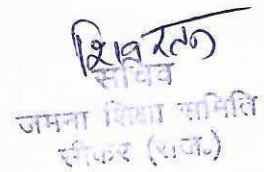 शिवरतन
सचिव
जमना शिक्षा समिति
सीकर (राज.)